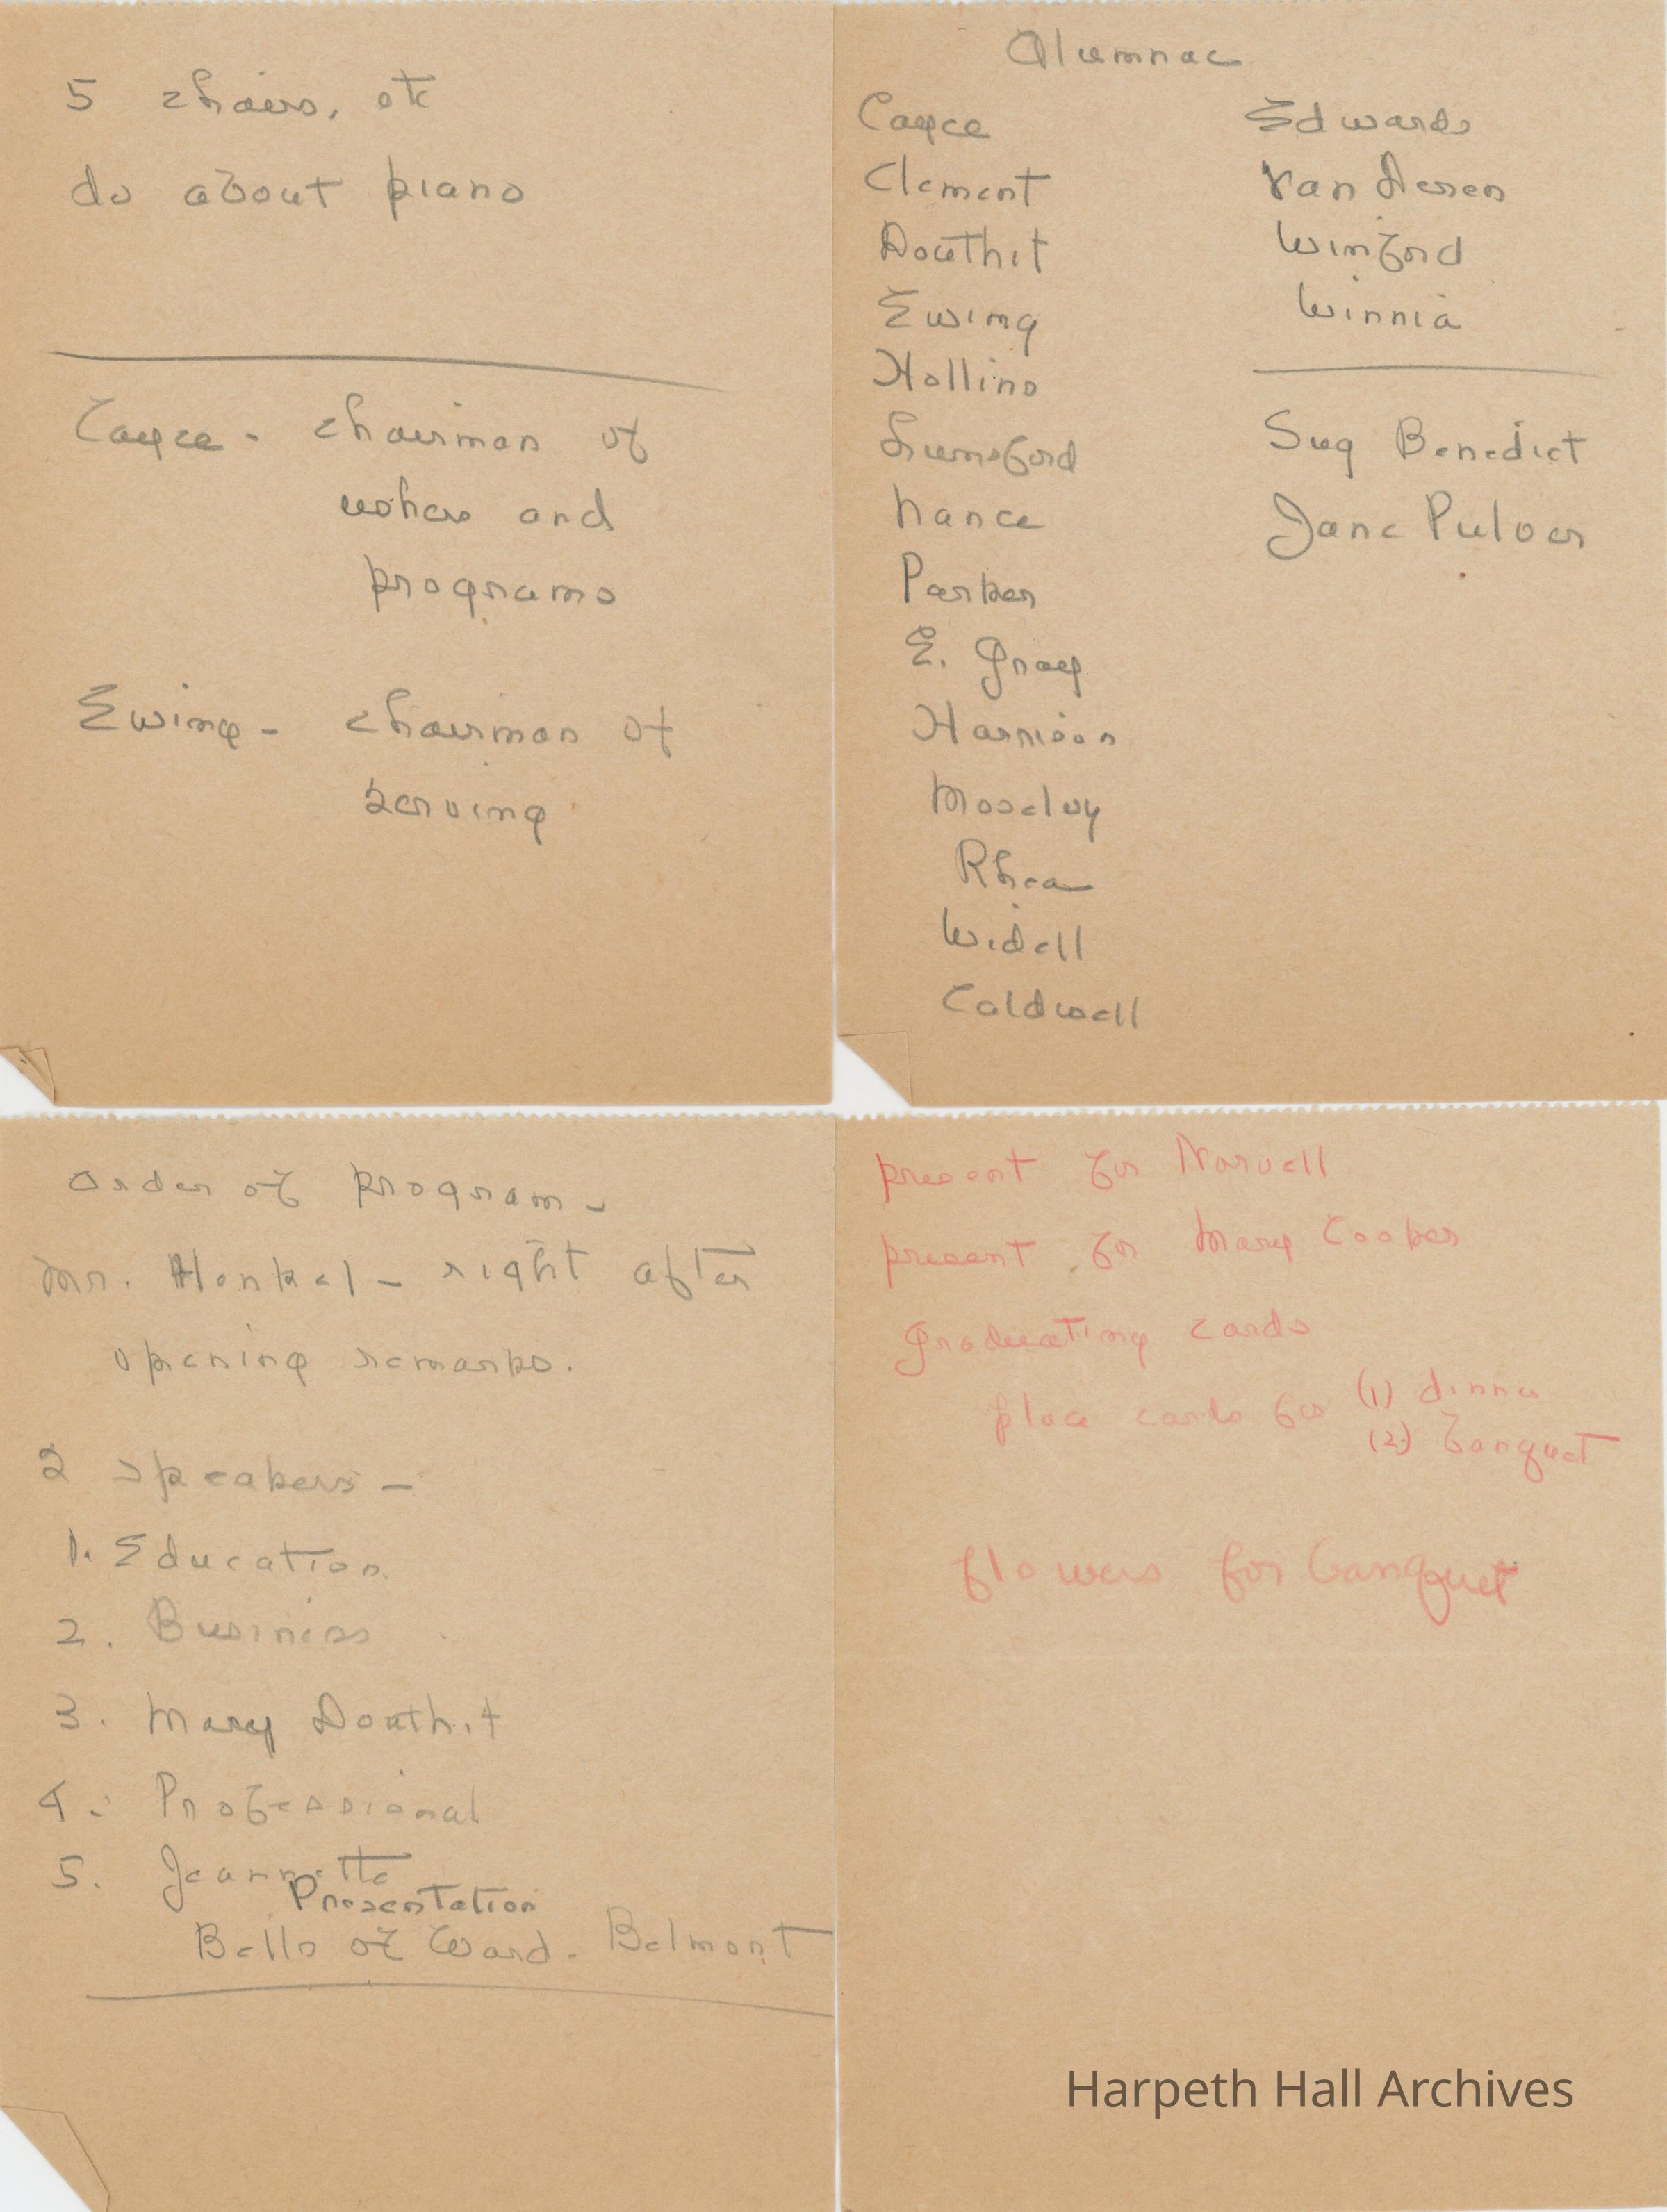 5 chairs, etc
do about piano
Cayce - chairman of
ushers and
programs
Ewing - chairman of
serving
Alumnae
Cayce
Clement
Douthit
Ewing
Hollins
Lunsford
Nance
Parker
E. Gray
Harrison
Moseley
Rhea
Widell
Caldwell
Edwards
Van Deren
Winford
Winnia
Sug Benedict
Jane Pulver
Order of program -
Mr. Henkel - right after
opening remarks.
2 speakers -
1. Education
2. Business
3. Mary Douthit
4. Professional
5. Jeannette
Presentation
Bells of Ward-Belmont
present for Norvell
present for Mary Cooper
graduating cards
place cards for (1) dinner
(2) banquet
flowers for banquet
Harpeth Hall Archives